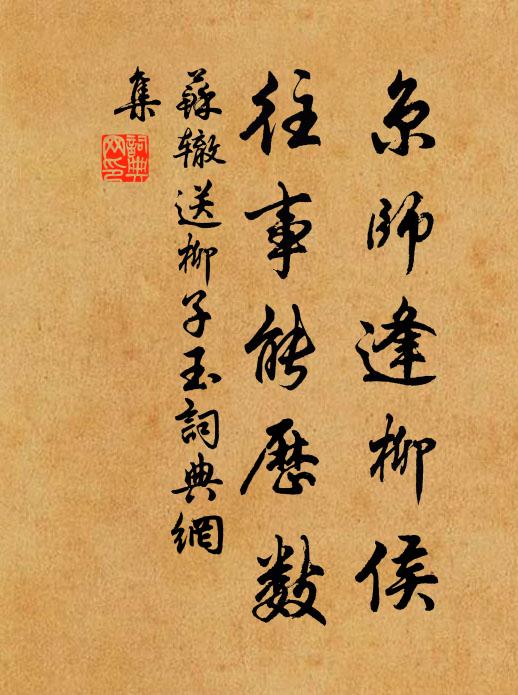 京師逢柳侯
往事能歷數
蘇轍送柳子玉詞典網
集
詞典
网印